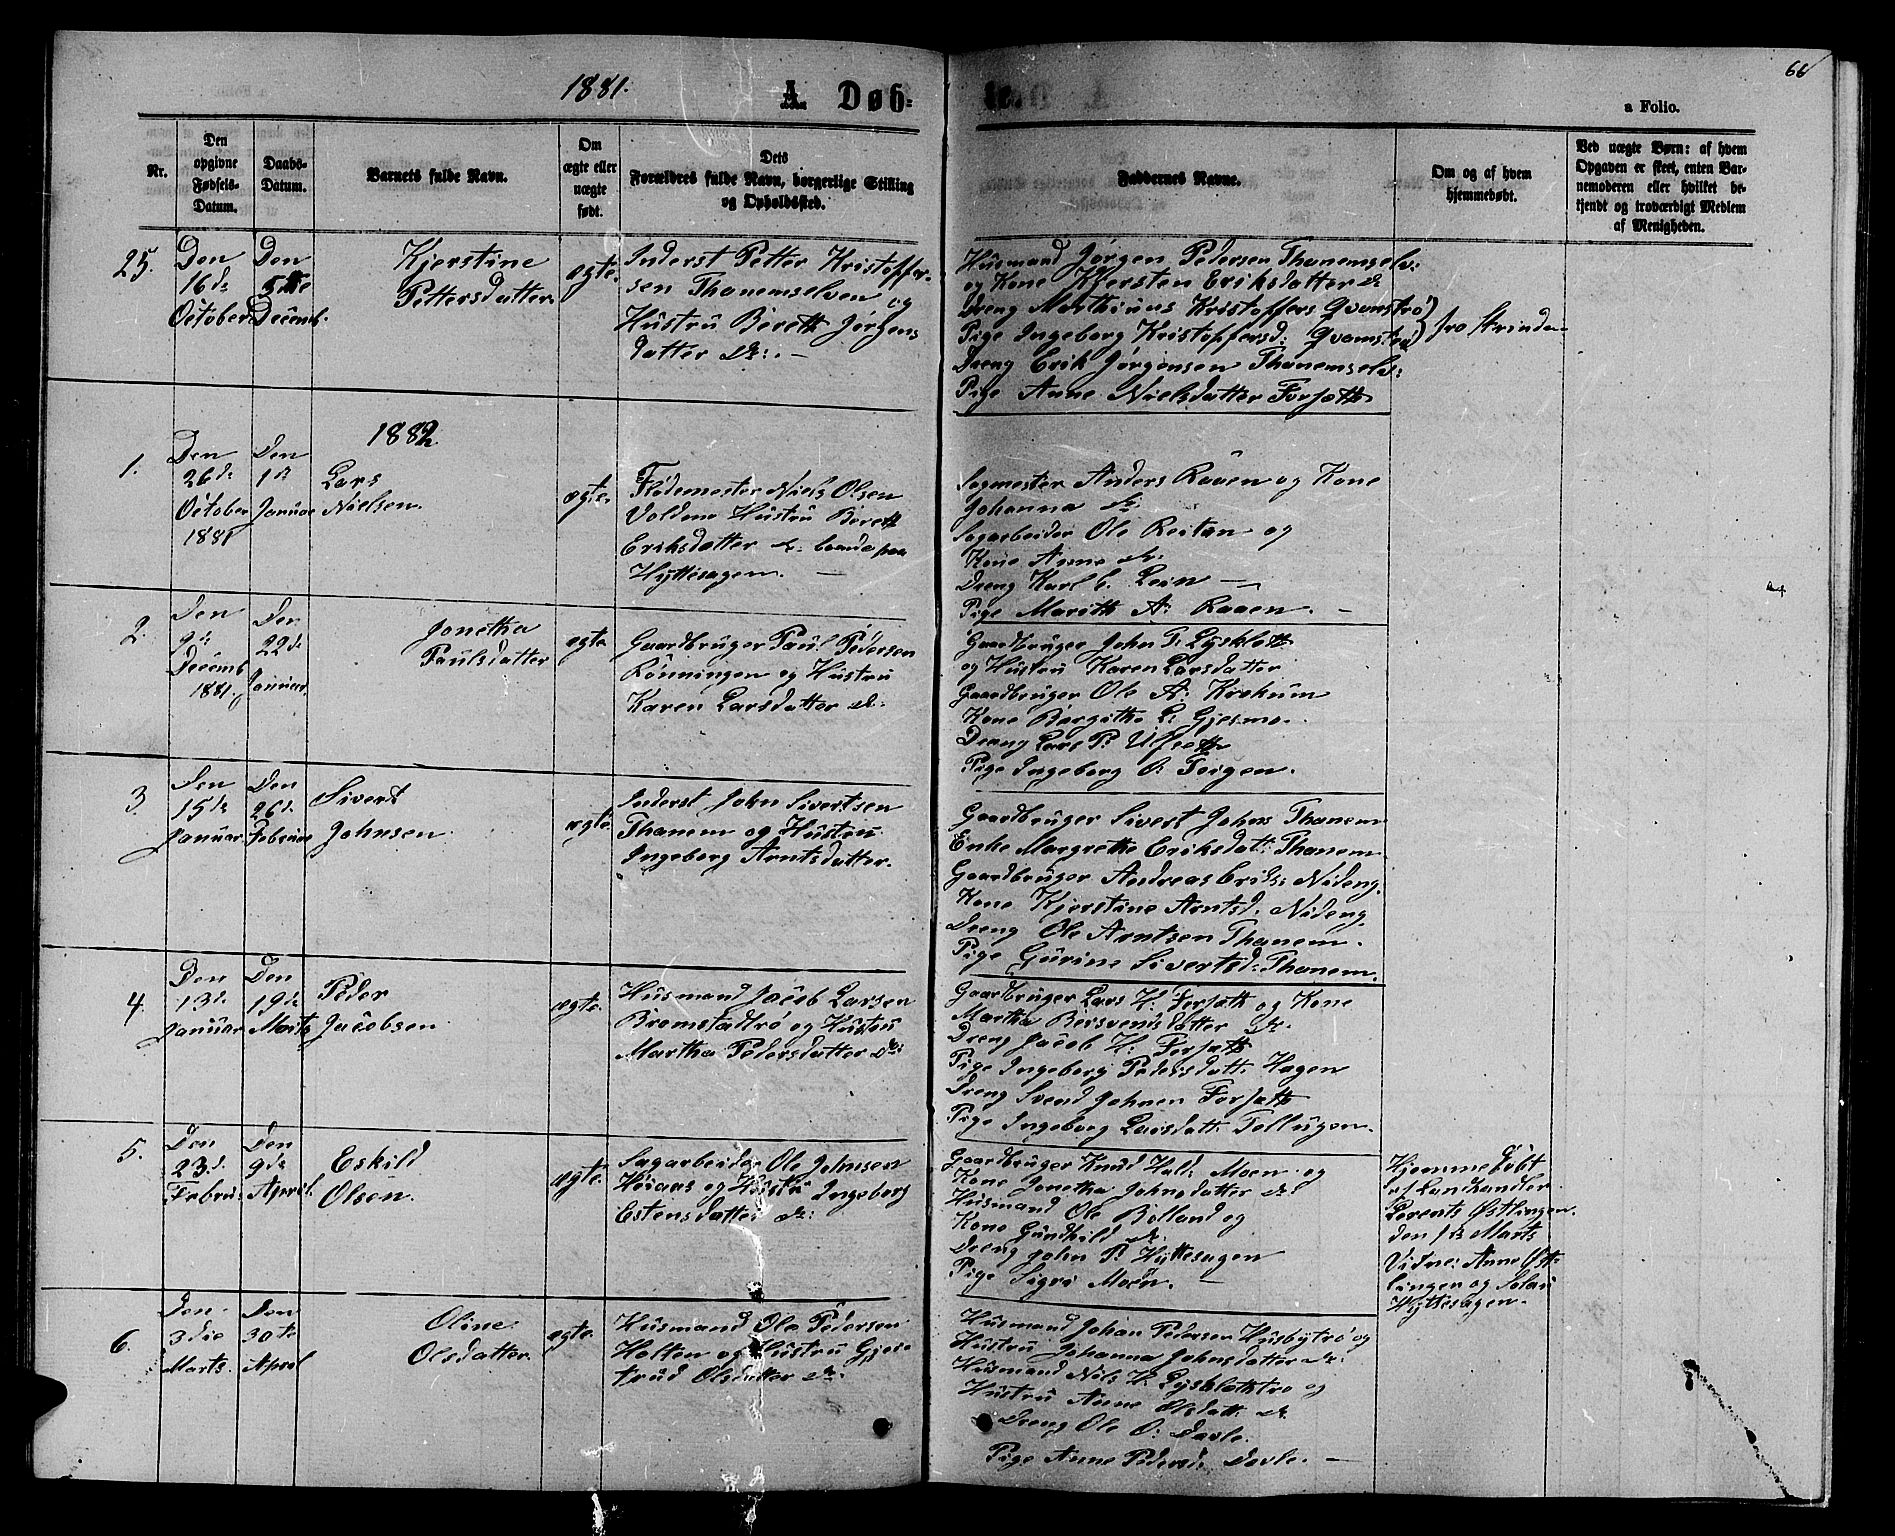 1881.
A. Døb=
66
a Folio.
Nr.
Den
opgivne
Fødsels-
Datum.
Daabs-
Datum.
Barnets fulde Navn.
Om
ægte eller
uægte
født.
Dets
Forældres fulde Navn, borgerlige Stilling
og Opholdssted.
Faddernes Navne.
Om og af hvem
hjemmedøbt.
Ved uægte Børn: af hvem
Opgaven er skeet, enten Bar-
nemoderen eller hvilket be-
kjendt og troværdigt Medlem
af Menigheden.
25.
Den
16de
October
Den
5te
Decemb.
Kjerstine
Pettersdatter
ægte.
Inderst Petter Kristoffer-
sen Thanemselven og
Hustru Berett Jørgens
datter do: —
Husmand Jørgen Pedersen Thanemselv:
og Kone Kjersten Eriksdatter do
Dreng Mathius Kristoffers Qvamstrø)
Pige Ingeborg Kristoffersd: Qvamstrø) fra Strinden
Dreng Erik Jørgensen Thanemselv:
Pige Anne Nielsdatter Forsætt
1882.
1.
Den
26de
October
1881
Den
1ste
Januar
Lars
Nielsen.
ægte.
Flødemester Niels Olsen
Volden Hustru Berett
Eriksdatter do: baade paa
Hyttesagen. —
Sagmester Anders Raaen og Kone
Johanna do.
Sagarbeider Ole Reitan og
Kone Anne do.
Dreng Karl C. Lein —
Pige Marith A: Raaen. —
2.
Den
9de
Decemb
1881.
Den
22de
Januar.
Jonetha
Paulsdatter
ægte
Gaardbruger Paul Pedersen
Rønningen og Hustru
Karen Larsdatter do:
Gaardbruger John P. Lysklett
og Hustru Karen Larsdatter
Gaardbruger Ole A: Krokum
Kone Bergithe L. Gjesmo.
Dreng Lars P. Ulfsett
Pige Ingeborg O: Teigen.
3
Den
15de
Januar
Den
26de
Februar
Sivert
Johnsen.
ægte
Inderst John Sivertsen
Thanem og Hustru
Ingeborg Arntsdatter.
Gaardbruger Sivert Johns Thanem
Enke Margrethe Eriksdatt: Thanem
Gaardbruger Andreas Eriks: Nideng.
Kone Kjerstine Arntsd: Nideng.
Dreng Ole Arntsen Thanem.
Pige Gurine Sivertsd: Thanem.
4.
Den
13de
Januar
Den
19de
Marts
Peder
Jacobsen
ægte.
Husmand Jacob Larsen
Bromstadtrø og Hustru
Martha Pedersdatter do:
Gaardbruger Lars H. Forsæth og Kone
Martha Bersvendsdatter do.
Dreng Jacob H: Forsætt
Pige Ingeborg Pedersdatt: Hagen
Dreng Svend Johnen Forsætt
Pige Ingeborg Larsdatt: Tellugen.
5.
Den
23d.
Febru:
Den
9de
April.
Eskild
Olsen.
ægte.
Sagarbeider Ole Johnsen
og Hustru Ingeborg
Estensdatter do:
Gaardbruger Knud Hald: Moen og
Kone Jonetha Johnsdatter do:
Husmand Ole Bolland og
Kone Gundhild do.
Dreng John P. Hyttesagen
Pige Sigri Moen. —
Hjemmedøbt
af Landhandler
Lorents Østlingen.
den 1ste Marts
Vidne: Anne Øst-
lingen og
Hyttesagen.
6.
Den
3die
Marts.
Den
30te
April
Oline
Olsdatter.
ægte.
Husmand Ole Pedersen
Holten og Hustru Gjer-
trud Olsdatter do:
Husmand Johan Pedersen Husbytrø og
Hustru Johanna Johnsdatter do:
Husmand Nils H. Lysklettrø og
Hustru Anne Olsdatt: do
Dreng Ole O: Davle.
Pige Anne Pedersd: Davle. —